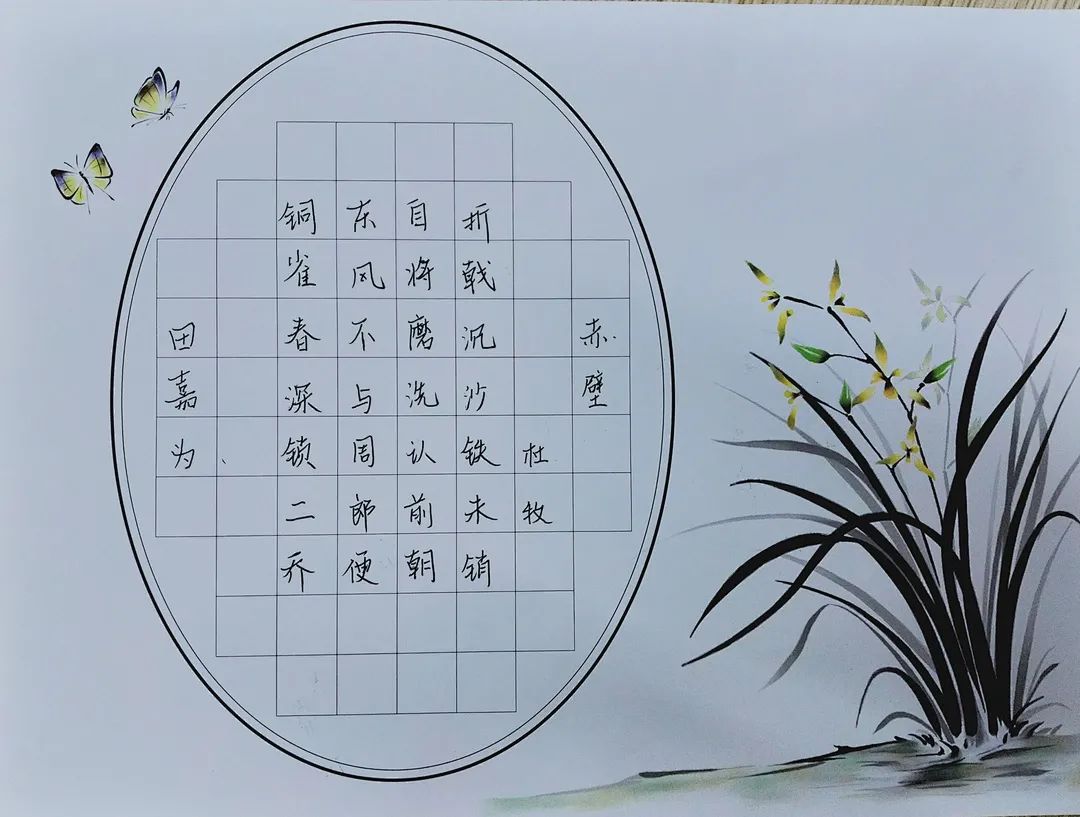 赤壁
杜牧
折戟沉沙铁未销
自将磨洗认前朝
东风不与周郎便
铜雀春深锁二乔
田嘉为